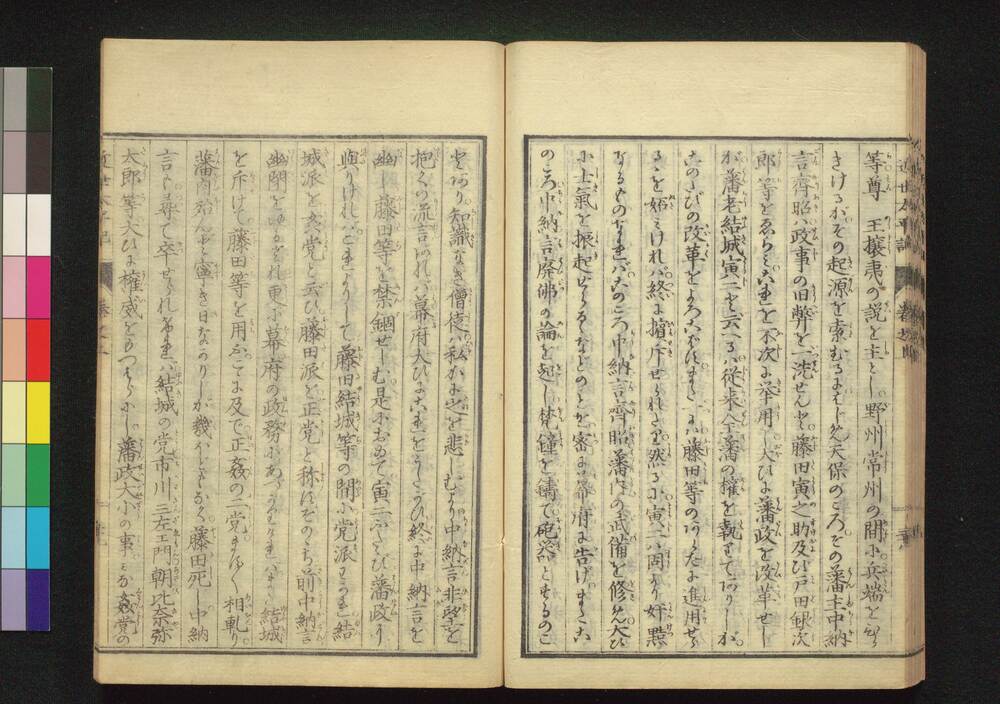 等尊王攘夷の説を主とし野州常州の間に兵端をひら
きけるがその起源を索むるにはじめ天保のころその藩主中納
言齊昭ハ政事の旧弊を一洗せんと藤田寅之助及び戸田銀次
郎等をゑらミこれを不次に挙用し大ひに藩政を改革せし
が藩老結城寅二と云るハ従来全藩の権を執りてありしが
このたびの改革をよろこばずまた藤田等のあらたに進用せら
るゝを妬ミけれバ終に擯斥せられたり然るに寅二ハ固より奸黠
なるものなれバこのころ中納言齊昭藩内の武備を修め大ひ
に士氣を振起せらるゝなどのことを密に幕府に告げまたこ
のころ中納言廃佛の論を起し梵鐘を鋳て砲器とするのこ
とあり知識なき僧徒ハ私かに之を悲しむより中納言非望を
抱くの流言あれバ幕府大ひにこれをうたがひ終に中納言を
幽し藤田等を禁錮せしむ是において寅二ふたゝび藩政に
與りけれバこれよりして藤田結城等の間に党派わかれ結
城派を奸党と云ひ藤田派を正党と称すそのゝち前中納言
幽閉をゆるされ更に幕府の政務にあづかりけれバまた結城
を斥けて藤田等を用ふこゝに及で正姦の二党ます／＼相軋り
藩内殆んど寧き日なかりしが幾バくもなく藤田死し中納
言も尋て卒せられけれバ結城の党市川三左エ門朝比奈弥
太郎等大ひに権威をもつはらにし藩政大小の事ミな姦党の